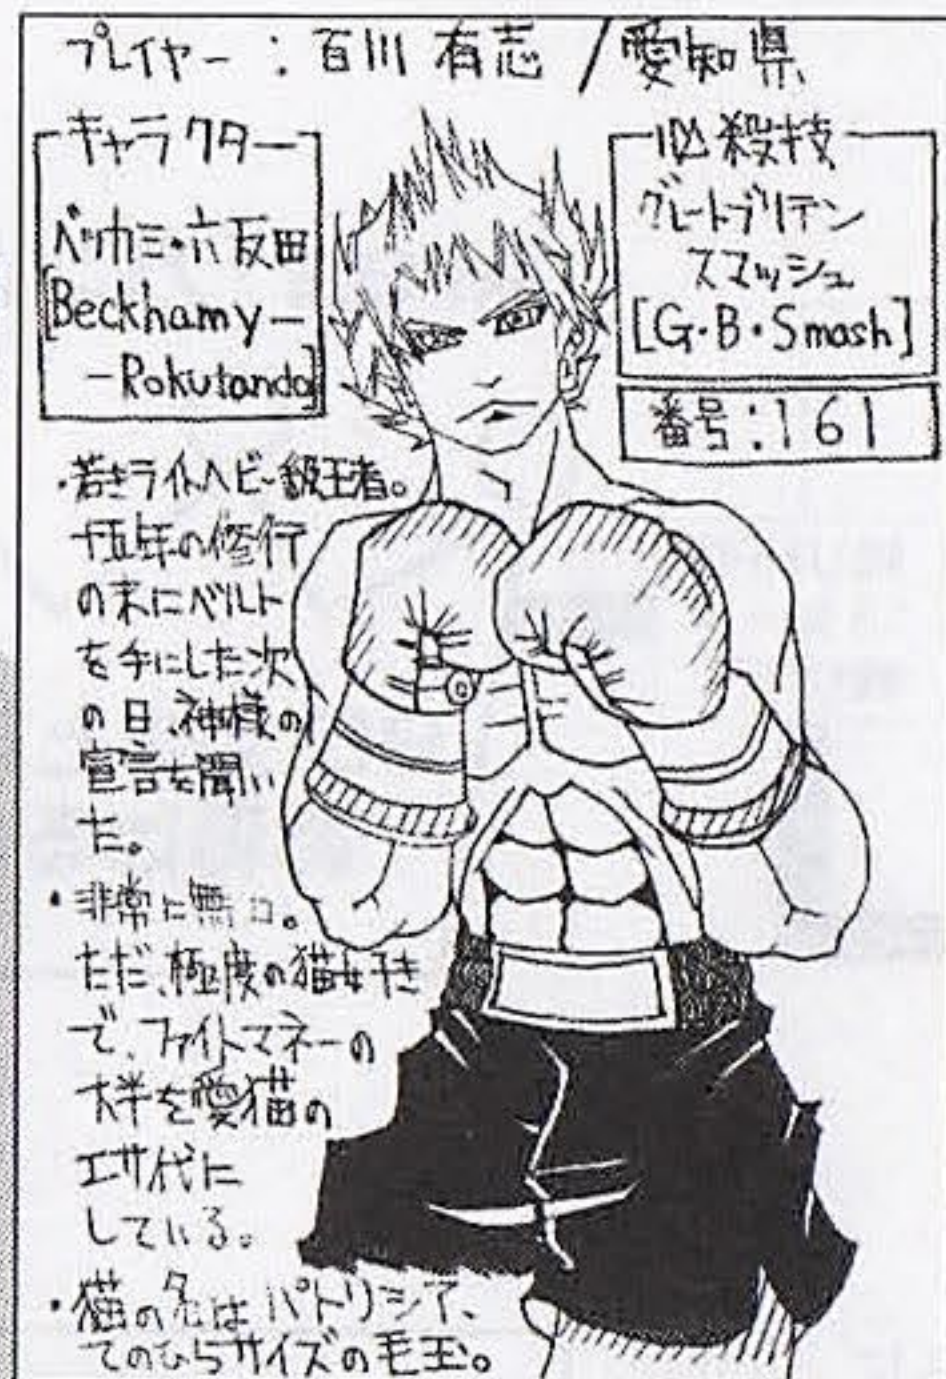 プレイヤー：百川 有志 / 愛知県
キャラクター
ベッカミ・六反田
[Beckhamy－
－Rokutanda]
必殺技
グレートブリテン
スマッシュ
[G・B・Smash]
番号：161
・若きライトヘビー級王者。
十五年の修行
の末にベルト
を手にした次
の日、神様の
宣言を聞い
た。
・非常に無口。
ただ、極度の猫好き
で、ファイトマネーの
大半を愛猫の
エサ代に
している。
・猫の名はパトリシア、
てのひらサイズの毛玉。